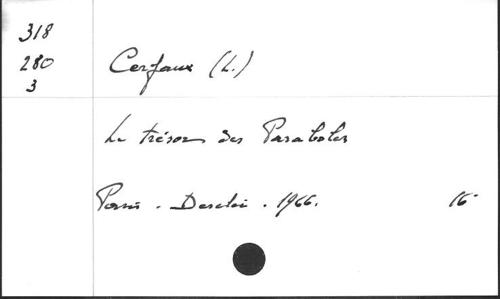 318
280
3
Cerfaux (L.)
Le trésor des Paraboles
Paris - Desclée. 1966. 16°